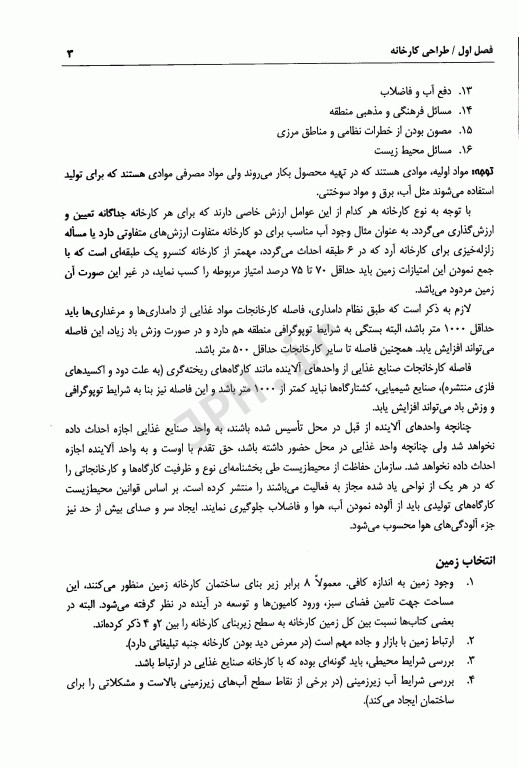 فصل اول / طراحی کارخانه ۳
۱۳. دفع آب و فاضلاب
۱۴. مسائل فرهنگی و مذهبی منطقه
۱۵. مصون بودن از خطرات نظامی و مناطق مرزی
۱۶. مسائل محیط زیست
توجه: مواد اولیه، موادی هستند که در تهیه محصول بکار می‌روند ولی مواد مصرفی موادی هستند که برای تولید
استفاده می‌شوند مثل آب، برق و مواد سوختنی.
با توجه به نوع کارخانه هر کدام از این عوامل ارزش خاصی دارند که برای هر کارخانه جداگانه تعیین و
ارزش‌گذاری می‌گردد. به عنوان مثال وجود آب مناسب برای دو کارخانه متفاوت ارزش‌های متفاوتی دارد یا مسأله
زلزله‌خیزی برای کارخانه آرد که در ۶ طبقه احداث می‌گردد، مهمتر از کارخانه کنسرو یک طبقه‌ای است که با
جمع نمودن این امتیازات زمین باید حداقل ۷۰ تا ۷۵ درصد امتیاز مربوطه را کسب نماید، در غیر این صورت آن
زمین مردود می‌باشد.
لازم به ذکر است که طبق نظام دامداری، فاصله کارخانجات مواد غذایی از دامداری‌ها و مرغداری‌ها باید
حداقل ۱۰۰۰ متر باشد، البته بستگی به شرایط توپوگرافی منطقه هم دارد و در صورت وزش باد زیاد، این فاصله
می‌تواند افزایش یابد. همچنین فاصله تا سایر کارخانجات حداقل ۵۰۰ متر باشد.
فاصله کارخانجات صنایع غذایی از واحدهای آلاینده مانند کارگاه‌های ریخته‌گری (به علت دود و اکسیدهای
فلزی منتشره)، صنایع شیمیایی، کشتارگاه‌ها نباید کمتر از ۱۰۰۰ متر باشد و این فاصله نیز بنا به شرایط توپوگرافی
و وزش باد می‌تواند افزایش یابد.
چنانچه واحدهای آلاینده از قبل در محل تأسیس شده باشند، به واحد صنایع غذایی اجازه احداث داده
نخواهد شد ولی چنانچه واحد غذایی در محل حضور داشته باشد، حق تقدم با اوست و به واحد آلاینده اجازه
احداث داده نخواهد شد. سازمان حفاظت از محیط‌زیست طی بخشنامه‌ای نوع و ظرفیت کارگاه‌ها و کارخانجاتی را
که در هر یک از نواحی یاد شده مجاز به فعالیت می‌باشند را منتشر کرده است. بر اساس قوانین محیط‌زیست
کارگاه‌های تولیدی باید از آلوده نمودن آب، هوا و فاضلاب جلوگیری نمایند. ایجاد سر و صدای بیش از حد نیز
جزء آلودگی‌های هوا محسوب می‌شود.
انتخاب زمین
۱. وجود زمین به اندازه کافی. معمولاً ۸ برابر زیر بنای ساختمان کارخانه زمین منظور می‌کنند، این
مساحت جهت تامین فضای سبز، ورود کامیون‌ها و توسعه در آینده در نظر گرفته می‌شود. البته در
بعضی کتاب‌ها نسبت بین کل زمین کارخانه به سطح زیربنای کارخانه را بین ۲و ۴ ذکر کرده‌اند.
۲. ارتباط زمین با بازار و جاده مهم است (در معرض دید بودن کارخانه جنبه تبلیغاتی دارد).
۳. بررسی شرایط محیطی، باید گونه‌ای بوده که با کارخانه صنایع غذایی در ارتباط باشد.
۴. بررسی شرایط آب زیرزمینی (در برخی از نقاط سطح آب‌های زیرزمینی بالاست و مشکلاتی را برای
ساختمان ایجاد می‌کند).
JPH.ir